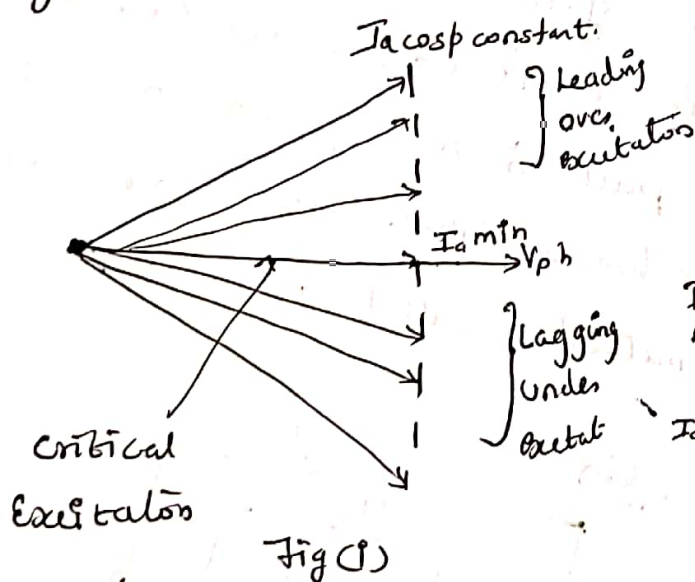 Ia cosp constant.
Leading
over
Excitation
Ia min
Vph
Lagging
Under
Excitat
I
Ia
Critical
Excitation
Fig (i)